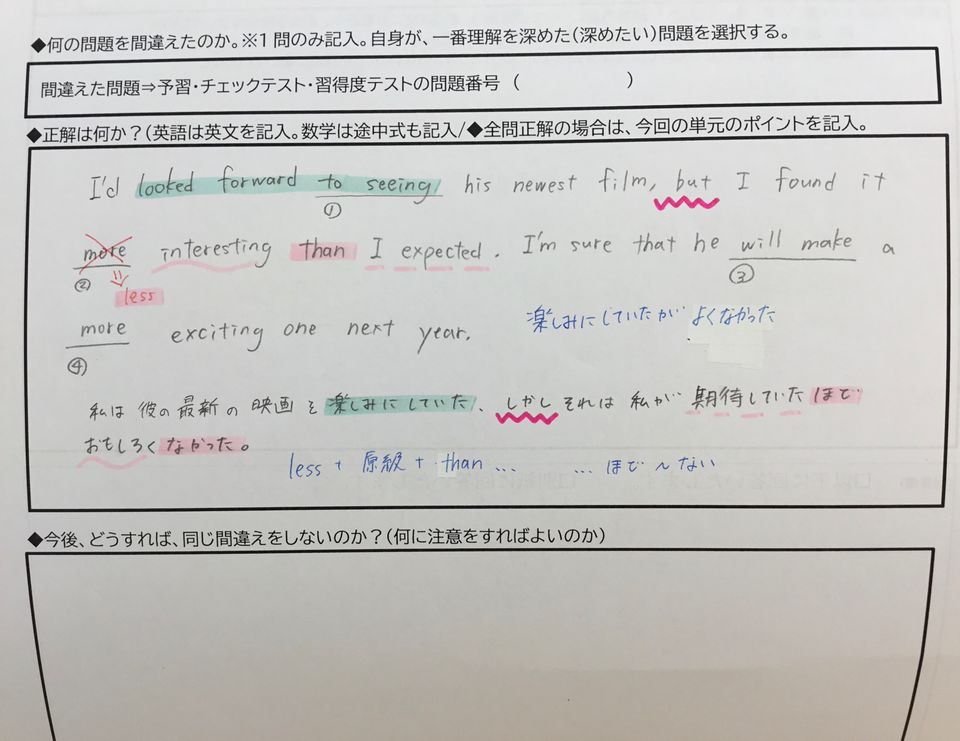 ◆何の問題を間違えたのか。※1問のみ記入。自身が、一番理解を深めた(深めたい)問題を選択する。
間違えた問題⇒予習・チェックテスト・習得度テストの問題番号 (　　　　　)
◆正解は何か?(英語は英文を記入。数学は途中式も記入/◆全問正解の場合は、今回の単元のポイントを記入。
I'd looked forward to seeing his newest film, but I found it
①
more interesting than I expected. I'm sure that he will make a
② ③
less
more exciting one next year.
④
楽しみにしていたがよくなかった
私は彼の最新の映画を楽しみにしていた、しかしそれは私が期待していたほど
おもしろくなかった。
less + 原級 + than ... ... ほど〜ない
◆今後、どうすれば、同じ間違えをしないのか?(何に注意をすればよいのか)